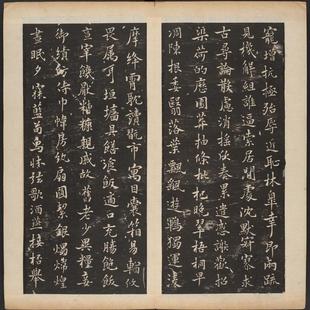 寵增抗極殆辱近恥林皋幸即兩疏
見機解組誰逼索居閒處沈默寂寥求
古尋論散慮逍遙欣奏累遣慼謝歡招
渠荷的歷園莽抽條枇杷晚翠梧桐早
凋陳根委翳落葉飄颻遊鵾獨運凌
摩絳霄耽讀翫市寓目囊箱易輶攸
畏屬耳垣牆具膳飡飯適口充腸飽飫
享宰飢厭糟糠親戚故舊老少異糧妾
御績紡侍巾帷房紈扇圓潔銀燭煒煌
晝眠夕寐藍笋象牀弦歌酒讌接杯舉